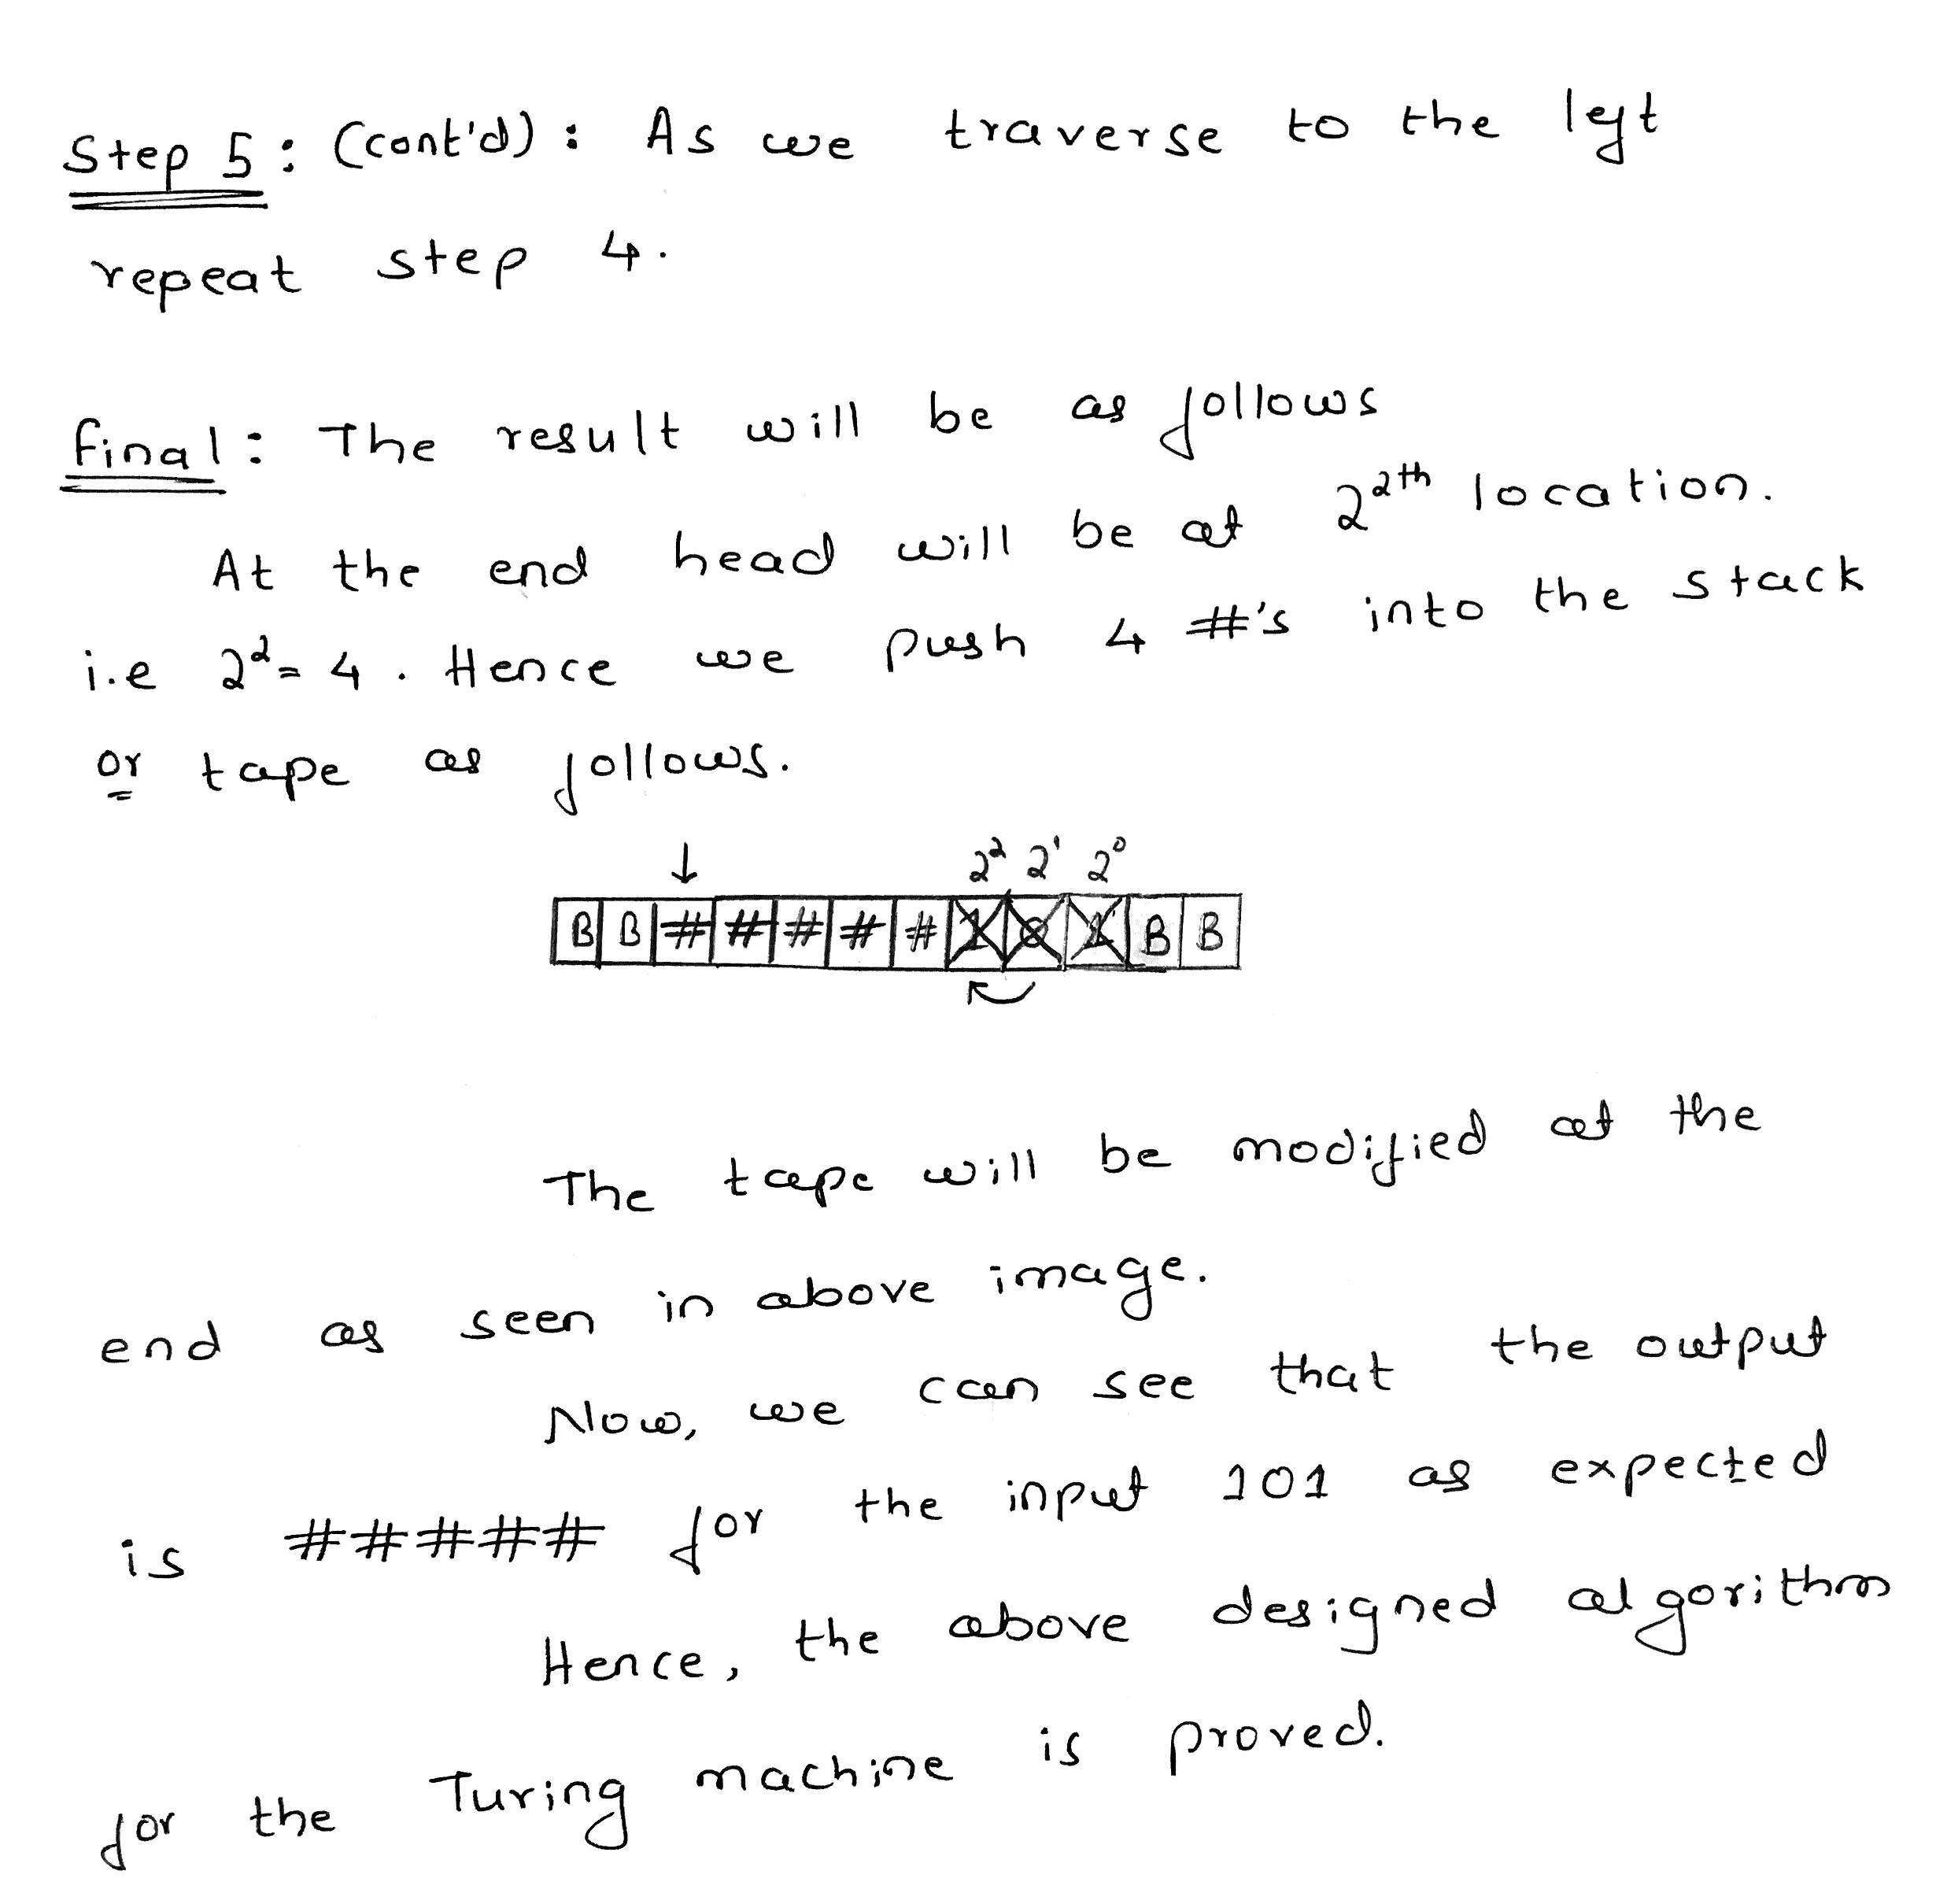 Step 5: (cont'd): As we traverse to the left
repeat step 4.
Final: The result will be as follows
At the end head will be at 2^2th location.
i.e 2^2 = 4. Hence we push 4 #'s into the stack
or tape as follows.
↓ 2^2 2^1 2^0
B B # # # # # 1 0 1 B B
The tape will be modified at the
end as seen in above image.
Now, we can see that the output
is ##### for the input 101 as expected
Hence, the above designed algorithm
for the Turing machine is proved.